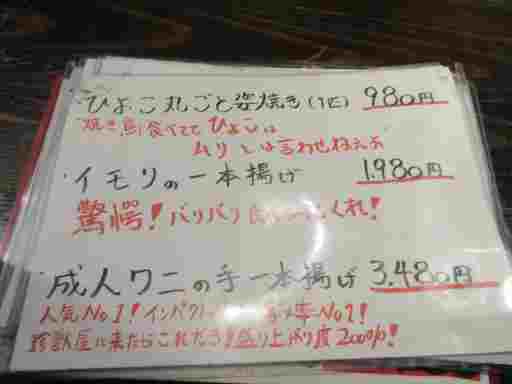 ひよこ丸ごと姿焼き(1匹) 980円
焼き鳥食べててひよこは
ムリとは言わせねえよ
イモリの一本揚げ 1.980円
驚愕!バリバリ くれ!
成人ワニの手一本揚げ 3.480円
人気No1!インパクト No1!
珍獣屋に来たらこれだろ!盛り上がり度200%!